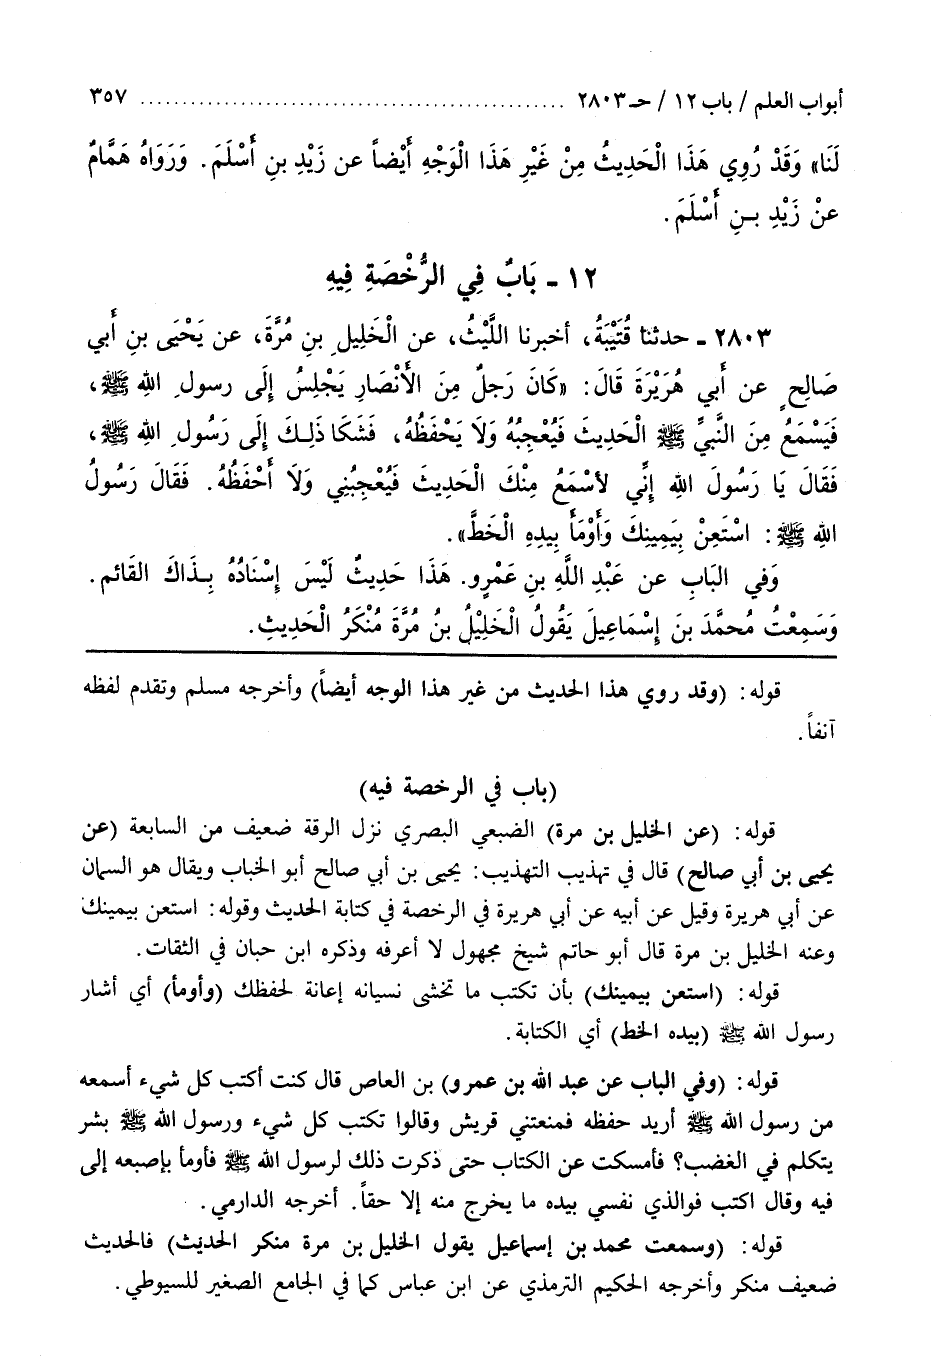 أبواب العلم / باب ١٢ / حـ ٢٨٠٣ .................................................. ٣٥٧
لَنَا» وَقَدْ رُوِي هَذَا الْحَدِيثُ مِنْ غَيْرِ هَذَا الْوَجْهِ أَيْضاً عن زَيْدِ بنِ أَسْلَمَ. وَرَوَاهُ هَمَّامٌ
عنْ زَيْدِ بـنِ أَسْلَمَ.
١٢ - بَابٌ فِي الرُّخْصَةِ فِيهِ
٢٨٠٣ - حدثنا قُتَيْبَةُ، أخبرنا اللَّيْثُ، عن الْخَلِيلِ بنِ مُرَّةَ، عن يَحْيَى بنِ أَبي
صَالِحٍ عن أَبي هُرَيْرَةَ قَالَ: «كَانَ رَجلٌ مِنَ الأَنْصَارِ يَجْلِسُ إلَى رسولِ اللهِ ﷺ،
فَيَسْمَعُ مِنَ النَّبيِّ ﷺ الْحَدِيثَ فَيُعْجِبُهُ وَلَا يَحْفَظُهُ، فَشَكَا ذَلِـكَ إلَى رَسُولِ اللهِ ﷺ،
فَقَالَ يَا رَسُولَ اللهِ إنِّي لأسْمَعُ مِنْكَ الْحَدِيثَ فَيُعْجِبُنِي وَلَا أَحْفَظُهُ. فَقَالَ رَسُولُ
اللهِ ﷺ: اسْتَعِنْ بِيَمِينِكَ وَأَوْمَأَ بِيدِهِ الْخَطَّ».
وَفي البَابِ عن عَبْدِ اللَّهِ بنِ عَمْرٍو. هَذَا حَدِيثٌ لَيْسَ إسْنَادُهُ بِـذَاكَ القَائم.
وَسَمِعْتُ مُحمَّدَ بنَ إسْمَاعِيلَ يَقُولُ الْخَلِيْلُ بنُ مُرَّةَ مُنْكَرُ الْحَدِيثِ.
قوله: (وقد روي هذا الحديث من غير هذا الوجه أيضاً) وأخرجه مسلم وتقدم لفظه
آنفاً.
(باب في الرخصة فيه)
قوله: (عن الخليل بن مرة) الضبعي البصري نزل الرقة ضعيف من السابعة (عن
يحيى بن أبي صالح) قال في تهذيب التهذيب: يحيى بن أبي صالح أبو الخباب ويقال هو السمان
عن أبي هريرة وقيل عن أبيه عن أبي هريرة في الرخصة في كتابة الحديث وقوله: استعن بيمينك
وعنه الخليل بن مرة قال أبو حاتم شيخ مجهول لا أعرفه وذكره ابن حبان في الثقات.
قوله: (استعن بيمينك) بأن تكتب ما تخشى نسيانه إعانة لحفظك (وأومأ) أي أشار
رسول الله ﷺ (بيده الخط) أي الكتابة.
قوله: (وفي الباب عن عبد الله بن عمرو) بن العاص قال كنت أكتب كل شيء أسمعه
من رسول الله ﷺ أريد حفظه فمنعتني قريش وقالوا تكتب كل شيء ورسول الله ﷺ بشر
يتكلم في الغضب؟ فأمسكت عن الكتاب حتى ذكرت ذلك لرسول الله ﷺ فأومأ بإصبعه إلى
فيه وقال اكتب فوالذي نفسي بيده ما يخرج منه إلا حقاً. أخرجه الدارمي.
قوله: (وسمعت محمد بن إسماعيل يقول الخليل بن مرة منكر الحديث) فالحديث
ضعيف منكر وأخرجه الحكيم الترمذي عن ابن عباس كما في الجامع الصغير للسيوطي.